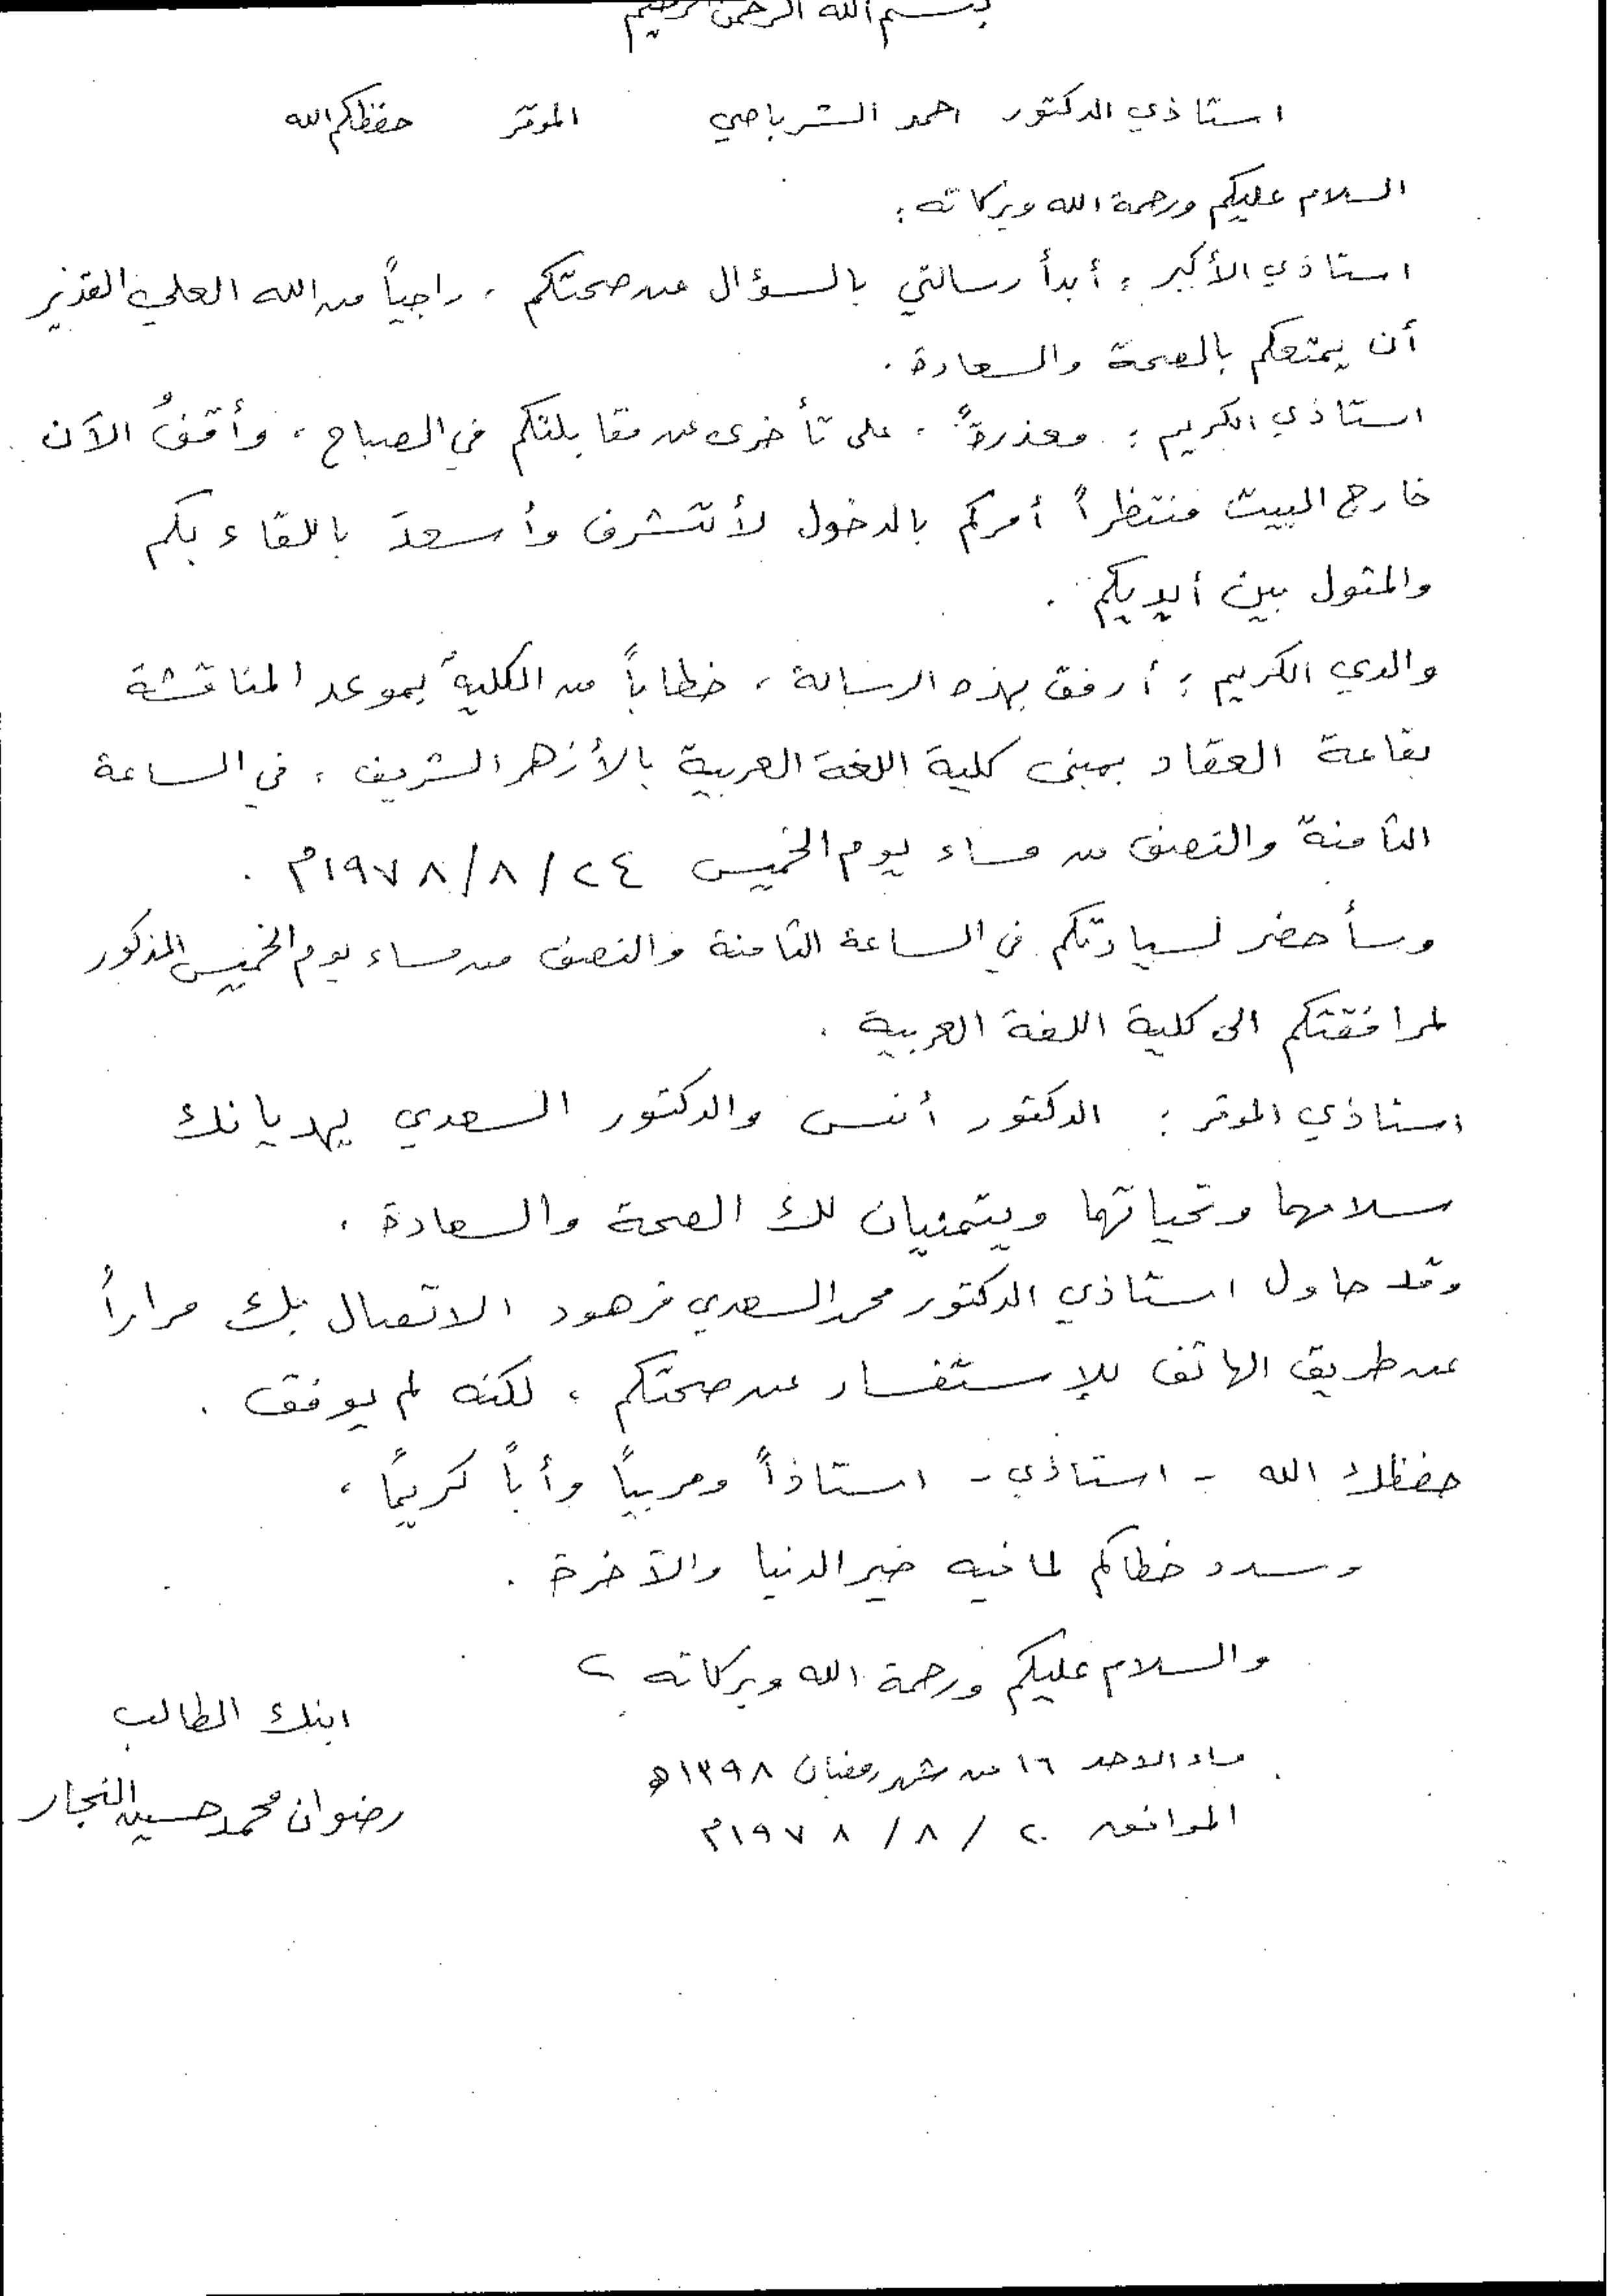 بسم الله الرحمن الرحيم
استاذي الدكتور احمد الشرباصي الموقر حفظكم الله
السلام عليكم ورحمة الله وبركاته :
استاذي الأكبر : أبدأ رسالتي بالسؤال عن صحتكم ، راجياً من الله العلي القدير
أن يمتعكم بالصحة والسعادة .
استاذي الكريم : معذرةً ، على تأخرى عن مقابلتكم في الصباح ، وأقفُ الآن
خارج البيت منتظراً أمركم بالدخول لأتشرف وأسعدَ باللقاء بكم
والمثول بين أيديكم .
والدي الكريم : أرفق بهذه الرسالة ، خطاباً من الكلية بموعد المناقشة
بقاعة العقاد بمبنى كلية اللغة العربية بالأزهر الشريف ، في الساعة
الثامنة والنصف من مساء يوم الخميس ٢٤ / ٨ / ١٩٧٨م .
وسأحضر لسيادتكم في الساعة الثامنة والنصف من مساء يوم الخميس المذكور
لمرافقتكم الى كلية اللغة العربية .
استاذي الموقر : الدكتور أنس والدكتور السعدي يهديانك
سلامهما وتحياتهما ويتمنيان لك الصحة والسعادة .
وقد حاول استاذي الدكتور محمد السعدي فرهود الاتصال بك مراراً
عن طريق الهاتف للإستفسار عن صحتكم ، لكنه لم يوفق .
حفظك الله - استاذي - استاذاً ومربياً وأباً كريماً ،
وسدد خطاكم لما فيه خير الدنيا والآخرة .
والسلام عليكم ورحمة الله وبركاته
ابنك الطالب
مساء الاحد ١٦ من شهر رمضان ١٣٩٨ه
رضوان محمد حسين النجار
الموافق ٢٠ / ٨ / ١٩٧٨م